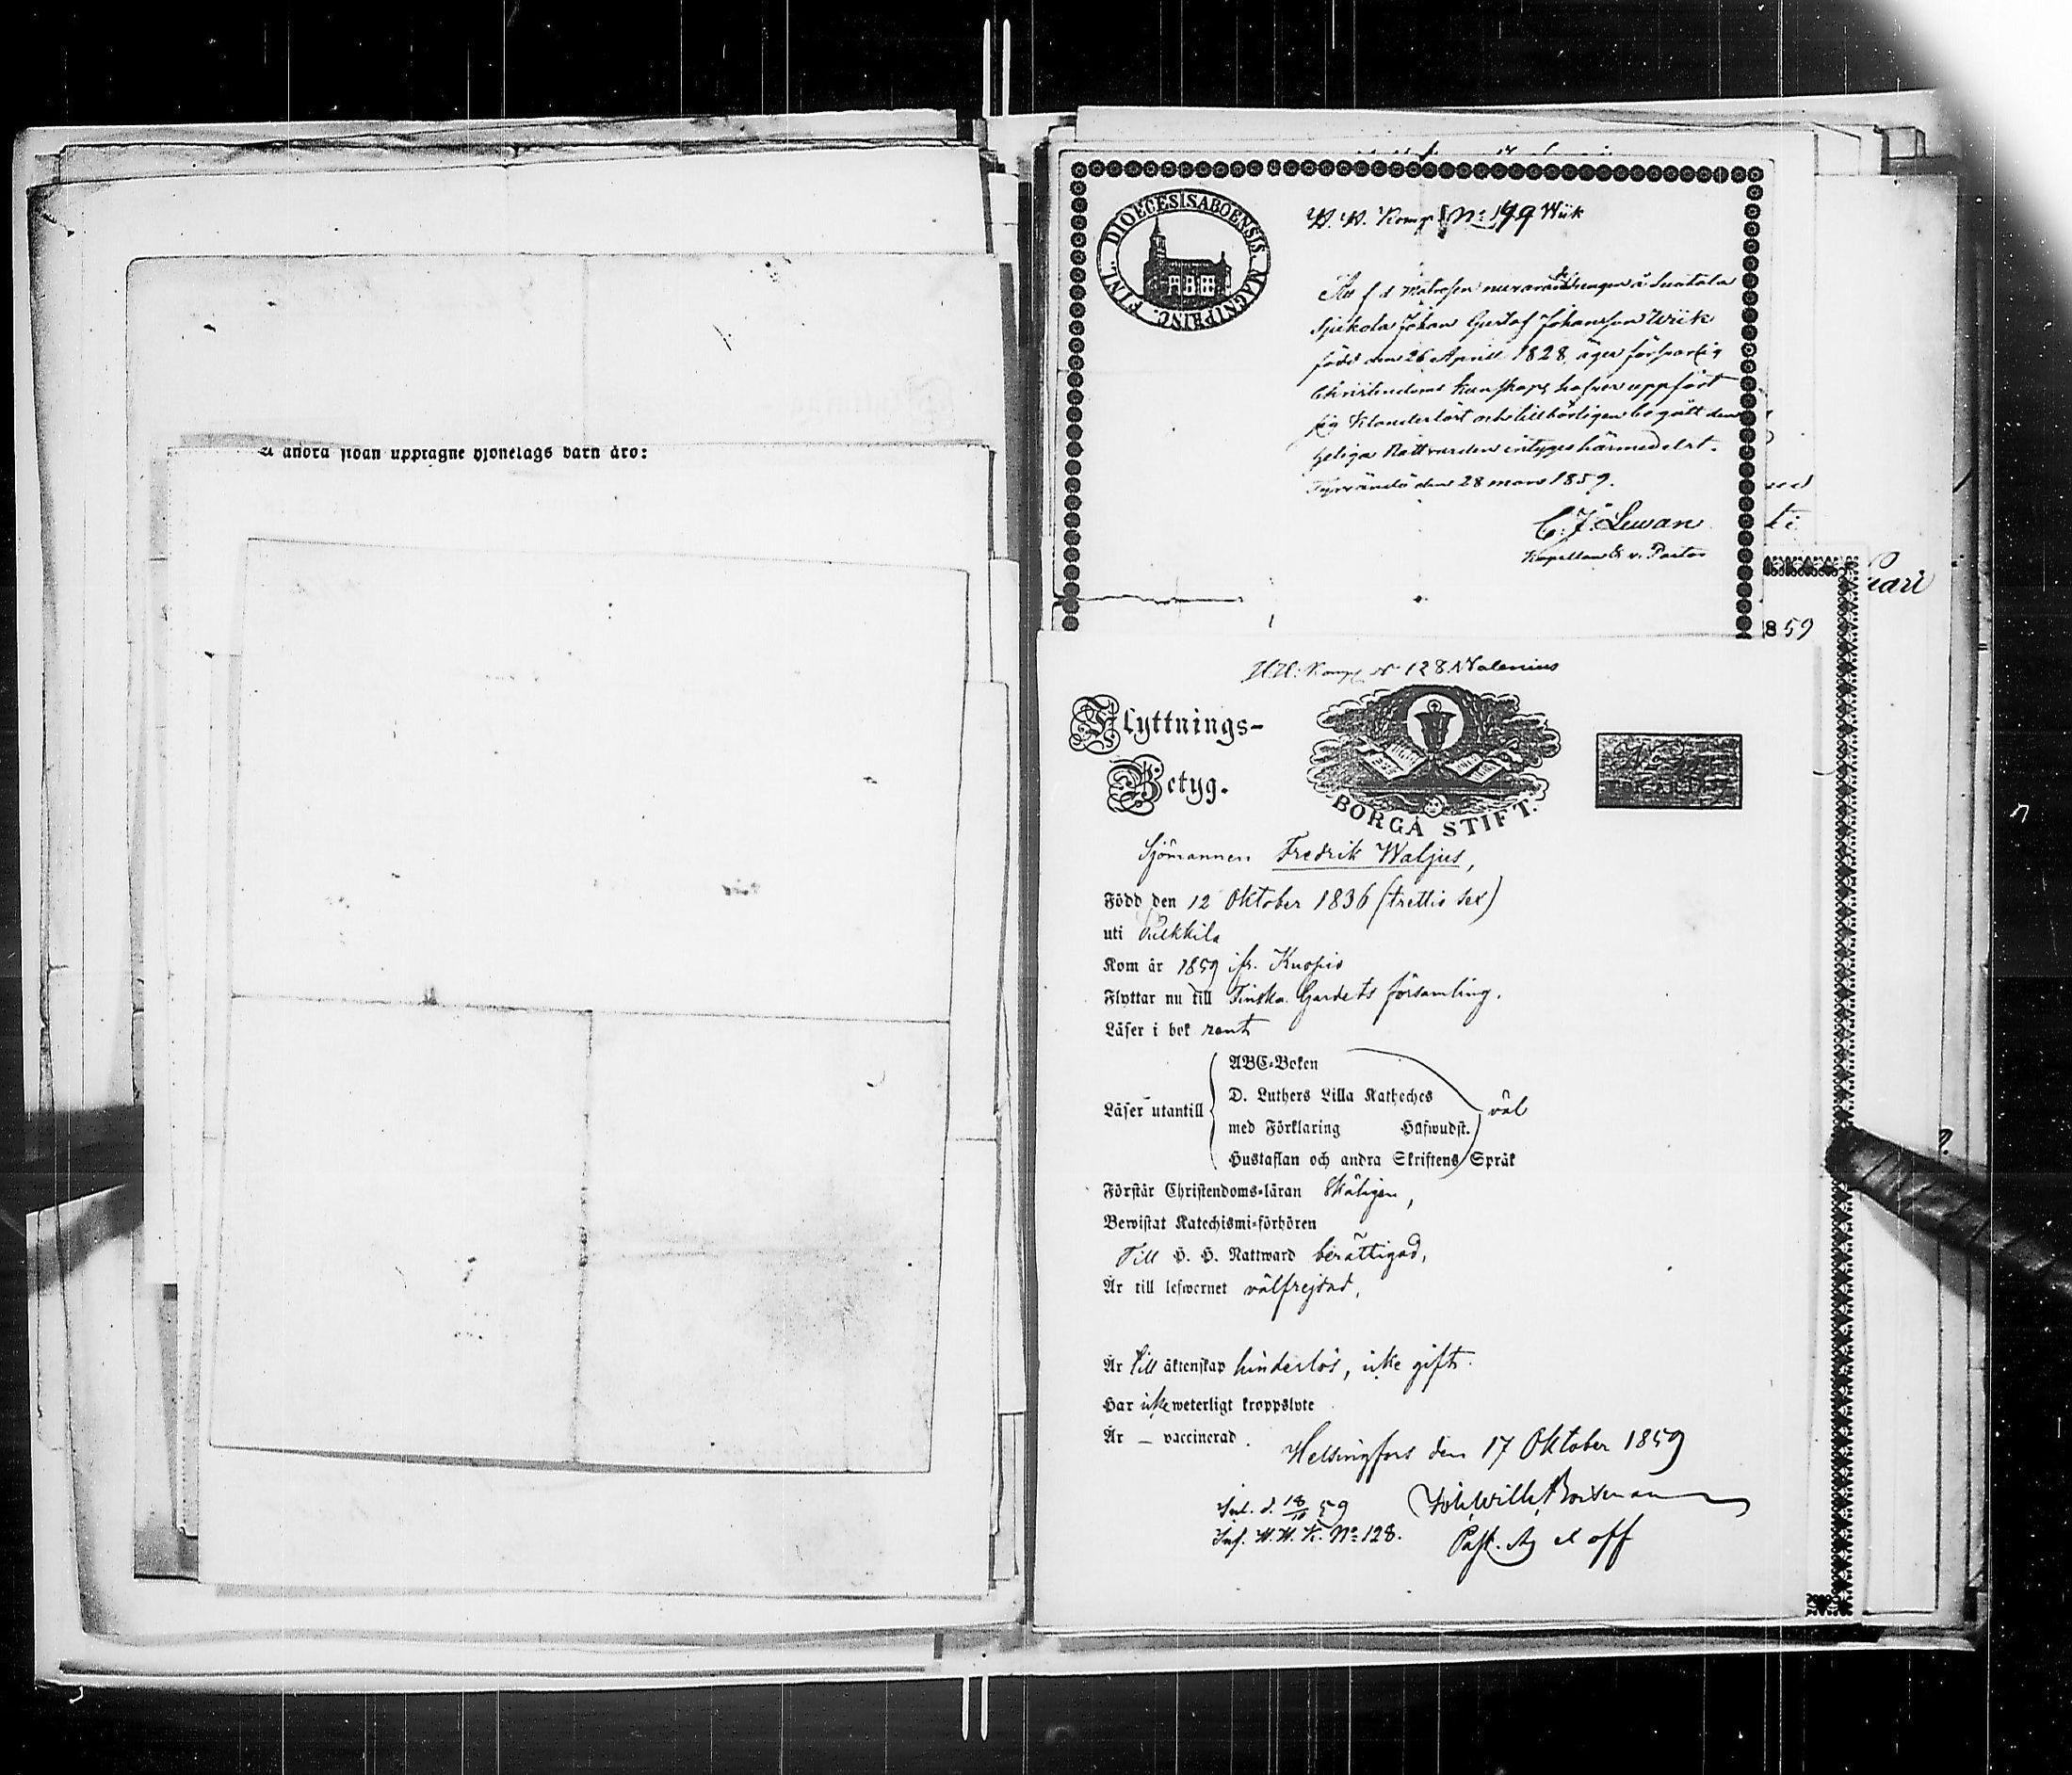 å andra sidan upptagne hjonelags barn äro:
DIOECESIS ABOENSIS MAGNI PRINC. FINL.
H. H. Komp No 199 Wiik
Att f d Matrosen nuvarande drengen å Suotala
Johan Gustaf Johansson Wiik
född den 26 April 1828, äger försvarlig
Christendoms kunskap, hafver uppfört
sig klanderlöst och tillbörligen begått den
heliga Nattvarden intygas härmedelst.
Tyrvändö den 28 mars 1859.
C. J. Lewan
Kapellan & v. Pastor
1859
H.H. Komp No 128 Walenius
Flyttnings-
Betyg.
BORGÅ STIFT.
Sjömannen Fredrik Waljus,
Född den 12 Oktober 1836 (trettio sex)
uti Pulkkila
Kom år 1859 ifr. Kuopio
Flyttar nu till Finska Gardets församling.
Läser i bok rent
ABC-Boken
D. Luthers Lilla Katheches
Läser utantill väl
med Förklaring Hufwudst.
Hustaflan och andra Skriftens Språk
Förstår Christendoms-läran skäligen,
Bewistat Katechismi-förhören
Till H. H. Nattward berättigad,
Är till lefwernet välfrejdad,
Är till äktenskap hinderlös, icke gift.
Har icke weterligt kroppslyte
Är — vaccinerad.
Helsingfors den 17 Oktober 1859
Inl. d. 18/10 59
Inf. H. H. K. No 128.
Past. Adj